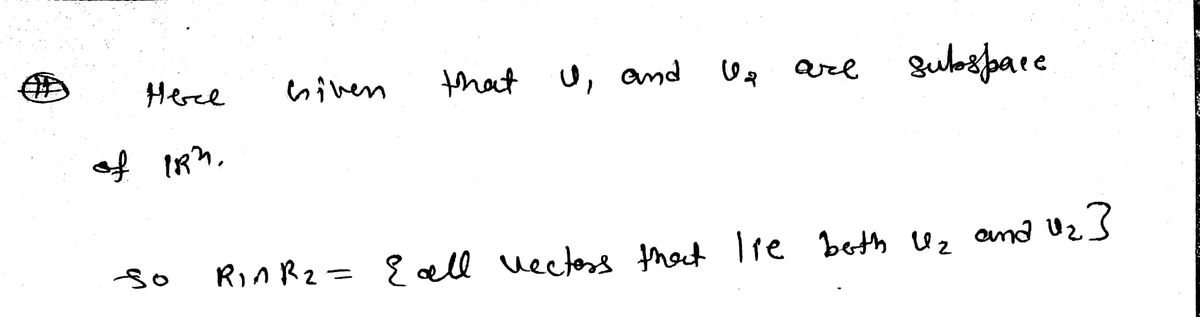 Here Given that U₁ and U₂ are subspace
of ℝⁿ.
so R₁∩R₂ = {all vectors that lie both U₂ and U₂}